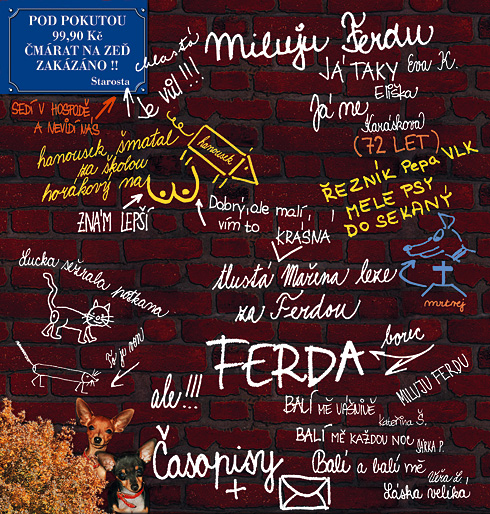 POD POKUTOU
99,90 Kč
ČMÁRAT NA ZEĎ
ZAKÁZÁNO !!
Starosta
chcartá
vůl!!!
Miluju Ferdu
JÁ TAKY Eva K.
Eliška
Já ne
Karásková
(72 LET)
SEDÍ V HOSPODĚ
A NEVIDÍ NÁS
hanousek šmatal
za školou
horákový na
hanousek
ZNÁM LEPŠÍ
Dobrý, ale malí,
vím to
KRÁSNA
ŘEZNÍK Pepa VLK
MELE PSY
DO SEKANÝ
mrtvej
Lucka sežrala potkana
To ju nem
tlustá Mařena leze
za Ferdou
FERDA
borec
ale!!!
MILUJU FERDU
BALÍ MĚ VÁŠNIVĚ
Kateřina Š.
BALÍ MĚ KAŽDOU NOC
ŠÁRKA P.
Balí a balí mě
Věra L.
Láska veliká
Časopisy
+